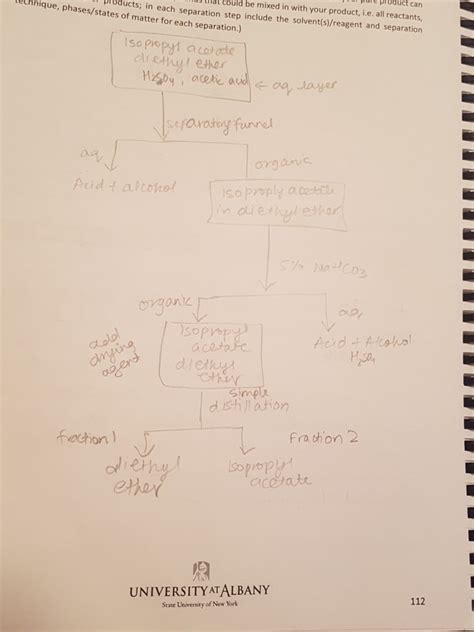 could be mixed in with your product, i.e. all reactants,
products; in each separation step include the solvent(s)/reagent and separation
technique, phases/states of matter for each separation.)
Isopropyl acetate
diethyl ether
H₂SO₄, acetic acid ← aq layer
separatory funnel
aq
organic
Acid + alcohol
Isoproply acetate
in diethyl ether
5%
organic
aq
add
drying
agent
Isopropyl
acetate
diethyl
ether
Acid + Alcohol
H₂SO₄
simple
distillation
fraction 1
Fraction 2
diethyl
ether
Isopropyl
acetate
UNIVERSITY AT ALBANY
State University of New York
112